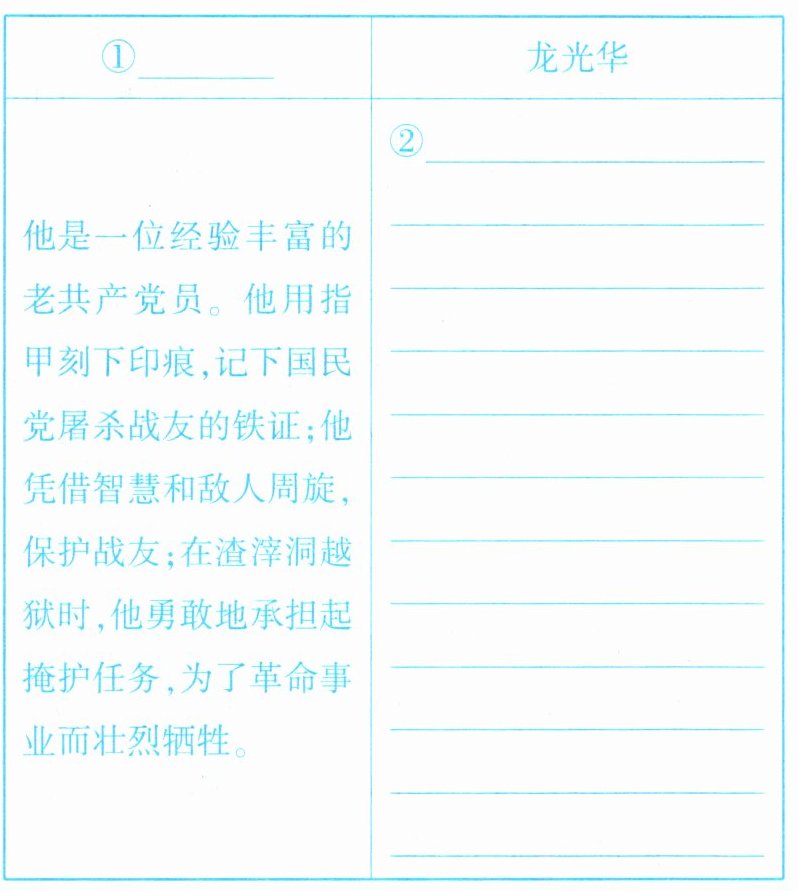 ①
龙光华
他是一位经验丰富的
老共产党员。他用指
甲刻下印痕,记下国民
党屠杀战友的铁证;他
凭借智慧和敌人周旋,
保护战友;在渣滓洞越
狱时,他勇敢地承担起
掩护任务,为了革命事
业而壮烈牺牲。
②